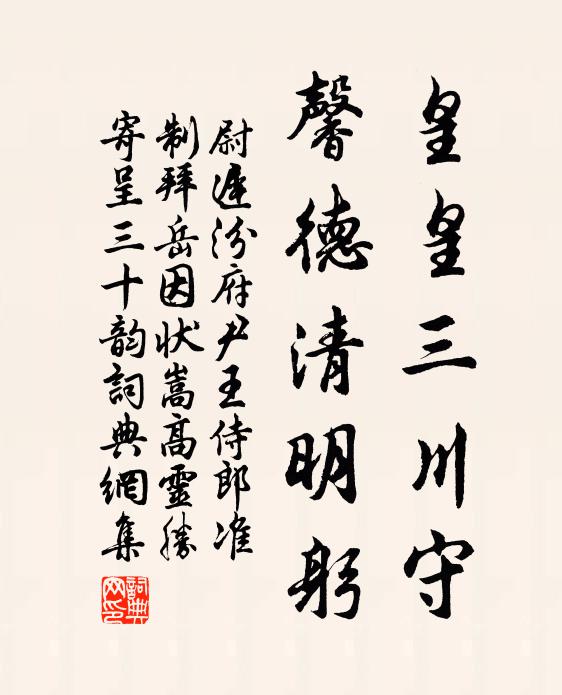 皇皇三川守
馨德清明躬
尉遲汾府尹王侍郎准
制拜岳因狀嵩高靈勝
寄呈三十韵詞典網集
詞典网印